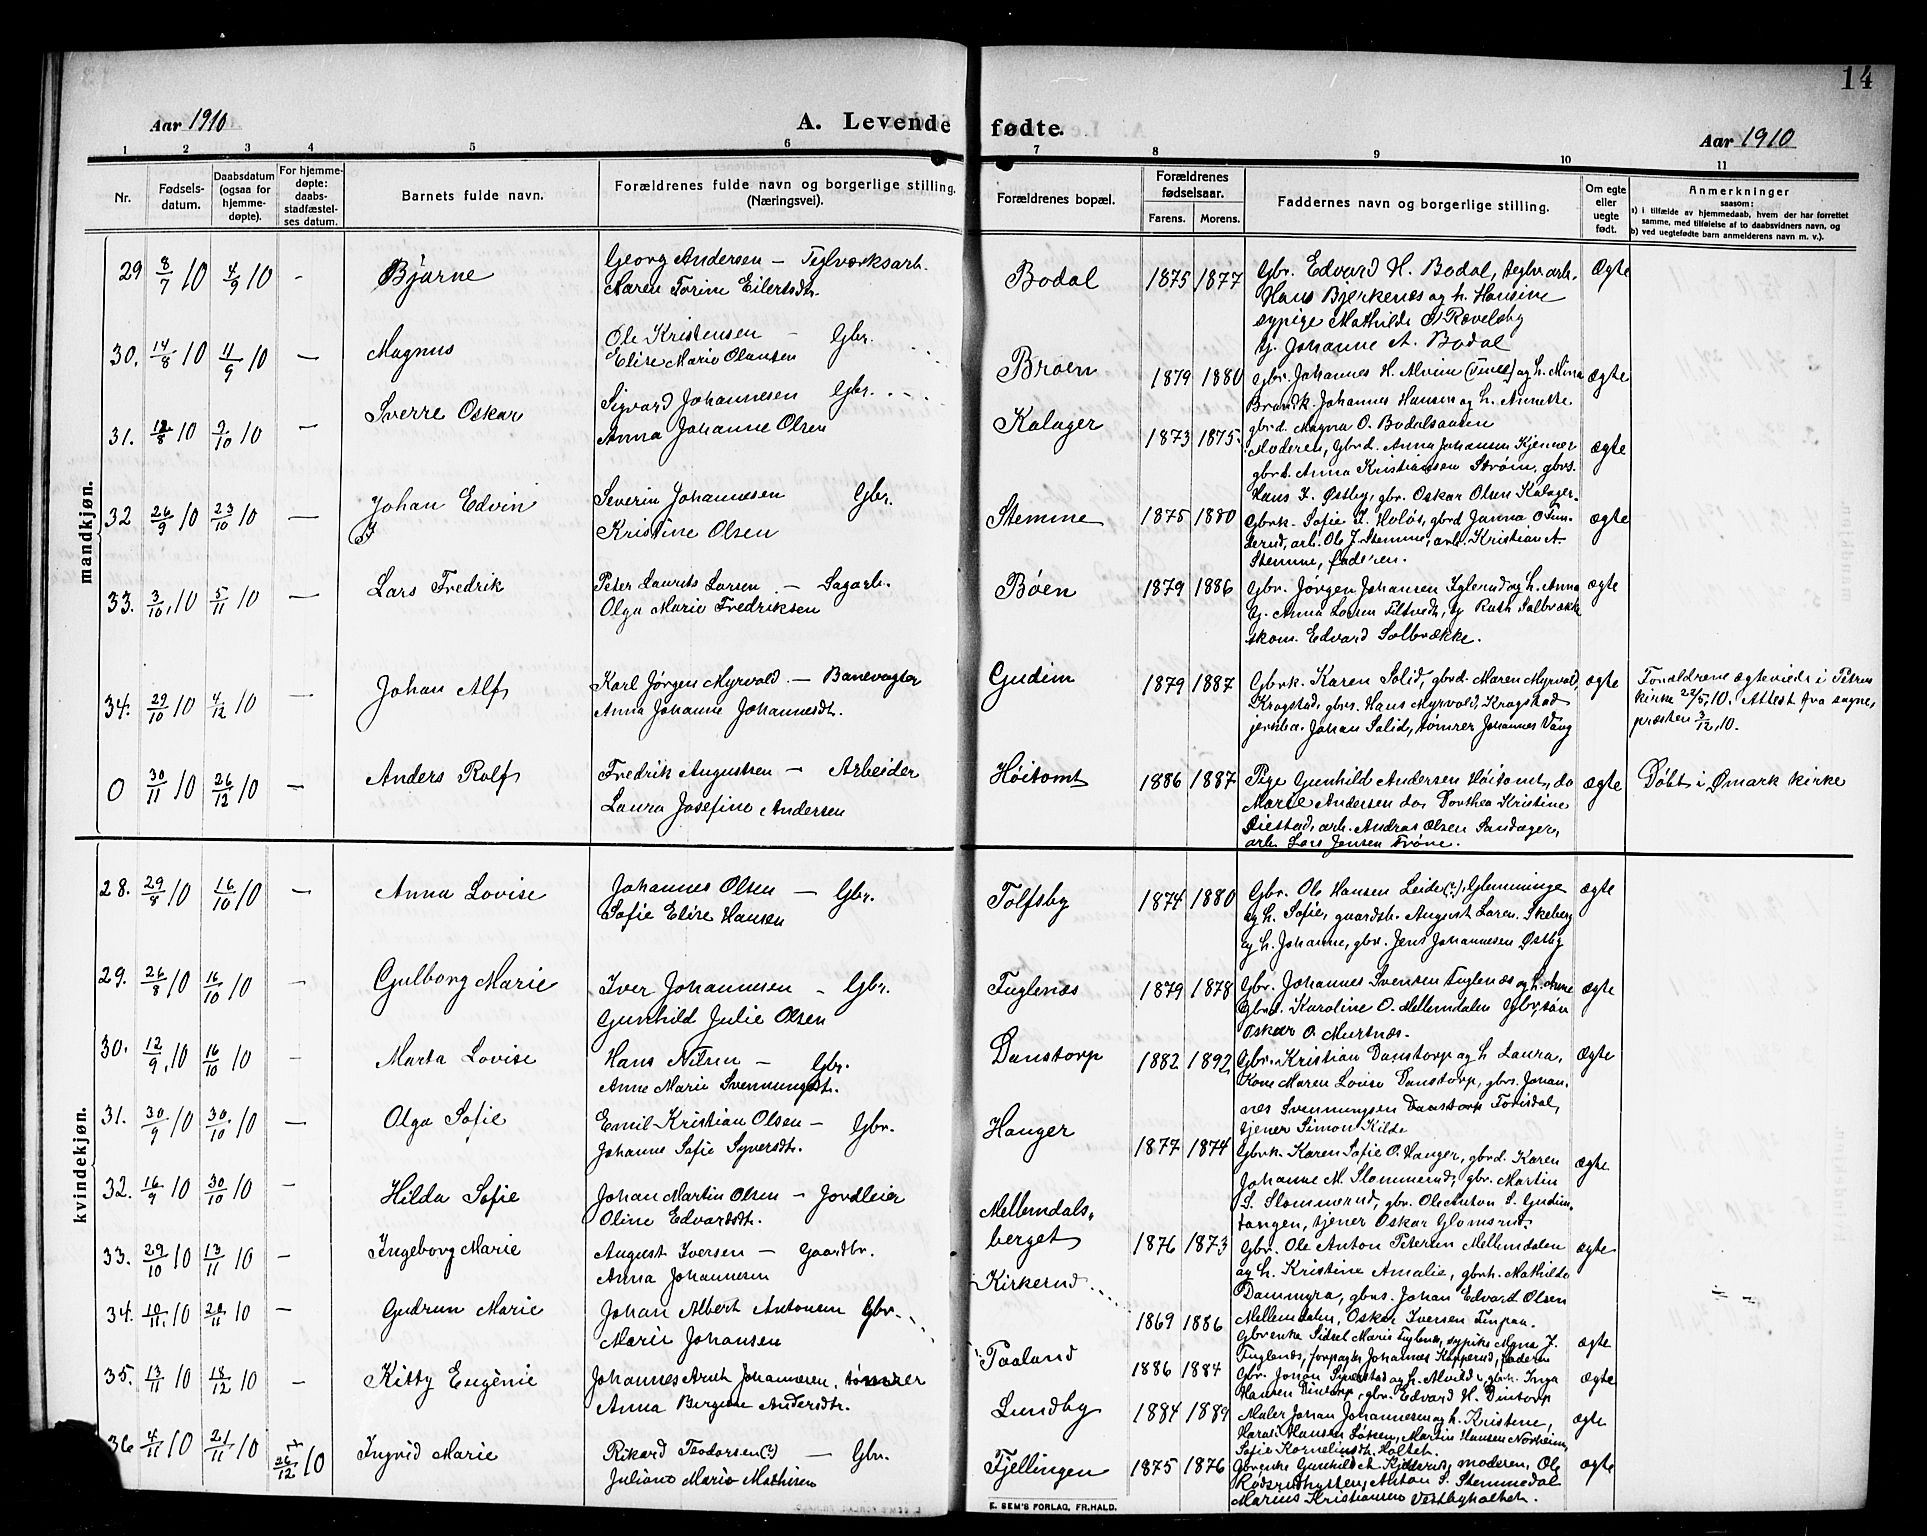 14
Aar 1910
A. Levende fødte.
Aar 1910
1 2 3 4 5 6 7 8 9 10 11
Nr.
Fødsels-
datum.
Daabsdatum
(ogsaa for
hjemme-
døpte).
For hjemme-
døpte:
daabs-
stadfæstel-
ses datum.
Barnets fulde navn.
Forældrenes fulde navn og borgerlige stilling.
(Næringsvei).
Forældrenes bopæl.
Forældrenes
fødselsaar.
Farens. Morens.
Faddernes navn og borgerlige stilling.
Om egte
eller
uegte
født.
Anmerkninger
saasom:
a) i tilfælde av hjemmedaab, hvem der har forrettet
samme, med tilføielse af to daabsvidners navn, og
b) ved uegtefødte barn anmelderens navn m. v.).
mandkjøn.
29 8/7 10 4/9 10 - Bjarne
Georg Andersen - Teglværksarb.
Maren Torine Eilertsdtr.
Bodal 1875 1877
Gbr. Edvard H. Bodal, teglv.arb.
Hans Bjerkenes og h. Hansine
sypige Mathilde Rævelsby
tj. Johanne A. Bodal
Ægte
30. 14/8 10 11/9 10 - Magnus
Ole Kristensen - Gbr.
Elise Marie Olausen
Braten 1879 1880
Gbr. Johannes H. Alvim (Tune) og h. Mina
Brandk. Johannes Hansen og h. Annette
gbrd. Magna O. Bodalsaasen
ægte
31. 12/8 10 9/10 10 - Sverre Oskar
Sigvard Johannesen Gbr.
Anna Johanne Olsen
Kalager 1873 1875.
Moderen, Gbrd. Anna Johansen Kjenner
gbrd. Anna Kristiansen Strøm, gbrs.
Hans I. Østby, gbr. Oskar Olsen Kalager.
ægte
32 26/9 10 23/10 10 - Johan Edvin
Severin Johannesen Gbr.
Kristine Olsen
Stemme 1875 1880
Gbrk. Sofie I. Holøs, gbrd Janna O Tun-
derud, arb. Ole J. Stemme, arb. Kristian A.
Stemme, faderen.
ægte
33. 3/10 10 5/11 10 - Lars Fredrik
Peter Laurits Larsen - Sagarb.
Olga Marie Fredriksen
Bøen 1879 1886
Gbr. Jørgen Johansen Iglerud og h. Anna
tj. Anna Larsen Filtvedt, tj Ruth Solbrække
skom. Edvard Solbrække.
ægte
34. 29/10 10 4/12 10 - Johan Alf
Karl Jørgen Myrvold - Banevogter
Anna Johanne Johannesdt.
Gudim 1879 1887
Gbrk. Karen Solid, gbrd. Maren Myrvold,
Kragstad, gbrs. Hans Myrvold, Kragstad
jernba. Johan Solid, tømrer Johannes Vang
ægte
Forældrene ægteviede i Petrus
kirke 22/5 10. Attest fra sogne-
præsten 3/12 10.
0 30/11 10 26/12 10 - Anders Rolf
Fredrik Augustsen - Arbeider
Laura Josefine Andersen
Høitomt 1886 1887
Pige Gunhild Andersen Høitomt, do
Marie Andersen do, Dorthea Kristine
Øiestad, arb. Andras Olsen Sandager,
arb. Lars Jensen Trøne.
ægte
Døbt i Ømark kirke
kvindekjøn.
28. 29/8 10 16/10 10 - Anna Lovise
Johannes Olsen - Gbr.
Sofie Elise Hansen
Tolfsby 1874 1880
Gbr. Ole Hansen Leide (?), Glemminge
og h. Sofie, gaardbr. August Laren. Skeberg
og h. Johanne, gbr. Jens Johannesen Østby
ægte
29. 26/8 10 16/10 10 - Gulborg Marie
Iver Johannesen - Gbr.
Gunhild Julie Olsen
Fuglenæs 1879 1878
Gbr. Johannes Svensen Fuglenæs og h. Anne
Gbrd. Karoline O. Mellemdalen Gbr.søn
Oskar O. Murtnæs.
ægte
30. 12/9 10 16/10 10 - Marta Lovise
Hans Nilsen - Gbr.
Anne Marie Svenningsdt.
Danstorp 1882 1892
Gbr. Kristian Danstorp og h Laura,
Kone Maren Louise Danstorp, gbrs. Johan-
nes Svenningsen Danstorp Torisdal,
tjener Simon Kilde
Ægte
31. 30/9 10 30/10 10 - Olga Sofie
Emil Kristian Olsen - Gbr.
Johanne Sofie Syversdt.
Hanger 1877 1874
Gbrk. Karen Sofie O. Hanger, gbrd. Karen
Johanne M. Slommerud, gbr. Martin
S. Slommerud, gbr. Ole Anton S. Gudim-
tangen, tjener Oskar Glomsrud
ægte
32. 16/9 10 30/10 10 - Hilda Sofie
Johan Martin Olsen - Jordleier
Oline Edvardsdt.
Mellemdals-
berget 1876 1873
Gbr. Ole Anton Petersen Mellemdalen
og h. Kristine Amalie, gbrh. Mathilde
Dammyra, gbrs. Johan Edvard Olsen
Mellemdalen, Oskar Iversen Timpan.
ægte
33. 29/10 10 13/11 10 - Ingeborg Marie
August Iversen - Gaardbr.
Anna Johannesen
Kirkerud 1869 1886
Gbrenke Sidsel Marie Fuglenæs, sypike Magna J.
Fuglenæs, forpagter Johannes Kopperud, faderen
ægte
34. 10/11 10 20/11 10 - Gudrun Marie
Johan Albert Antonsen Gbr.
Marie Johansen
Paaland 1886 1884
Gbr. Johan Syverstad og h. Alvilde, gbrh. Inga
Hansen Dintorp, gbr. Edvard H. Dintorp
ægte
35. 13/11 10 18/12 10 - Kitty Eugenie
Johannes Arnt Johannesen, tømrer
Anna Bergine Andersdtr.
Lundby 1884 1889
Maler Johan Johannesen og h. Kristine,
Harald Hansen Løken, Martin Hansen Norheim,
Sofie Kornelinsdt. Holtet.
ægte
36 4/11 10 21/11 10 26/12 10 Ingrid Marie
Rikard Teodorsen (?) - Gbr.
Juliane Marie Mathisen
Fjellingen 1875 1876
Gbrenke Gunhild A Kjølderud, moderen, Ole
Rødsrudhytten, Anton S. Stemmedal
Marius Kristiansen Vestbyholtet.
ægte
E. SEM'S FORLAG, FR.HALD.